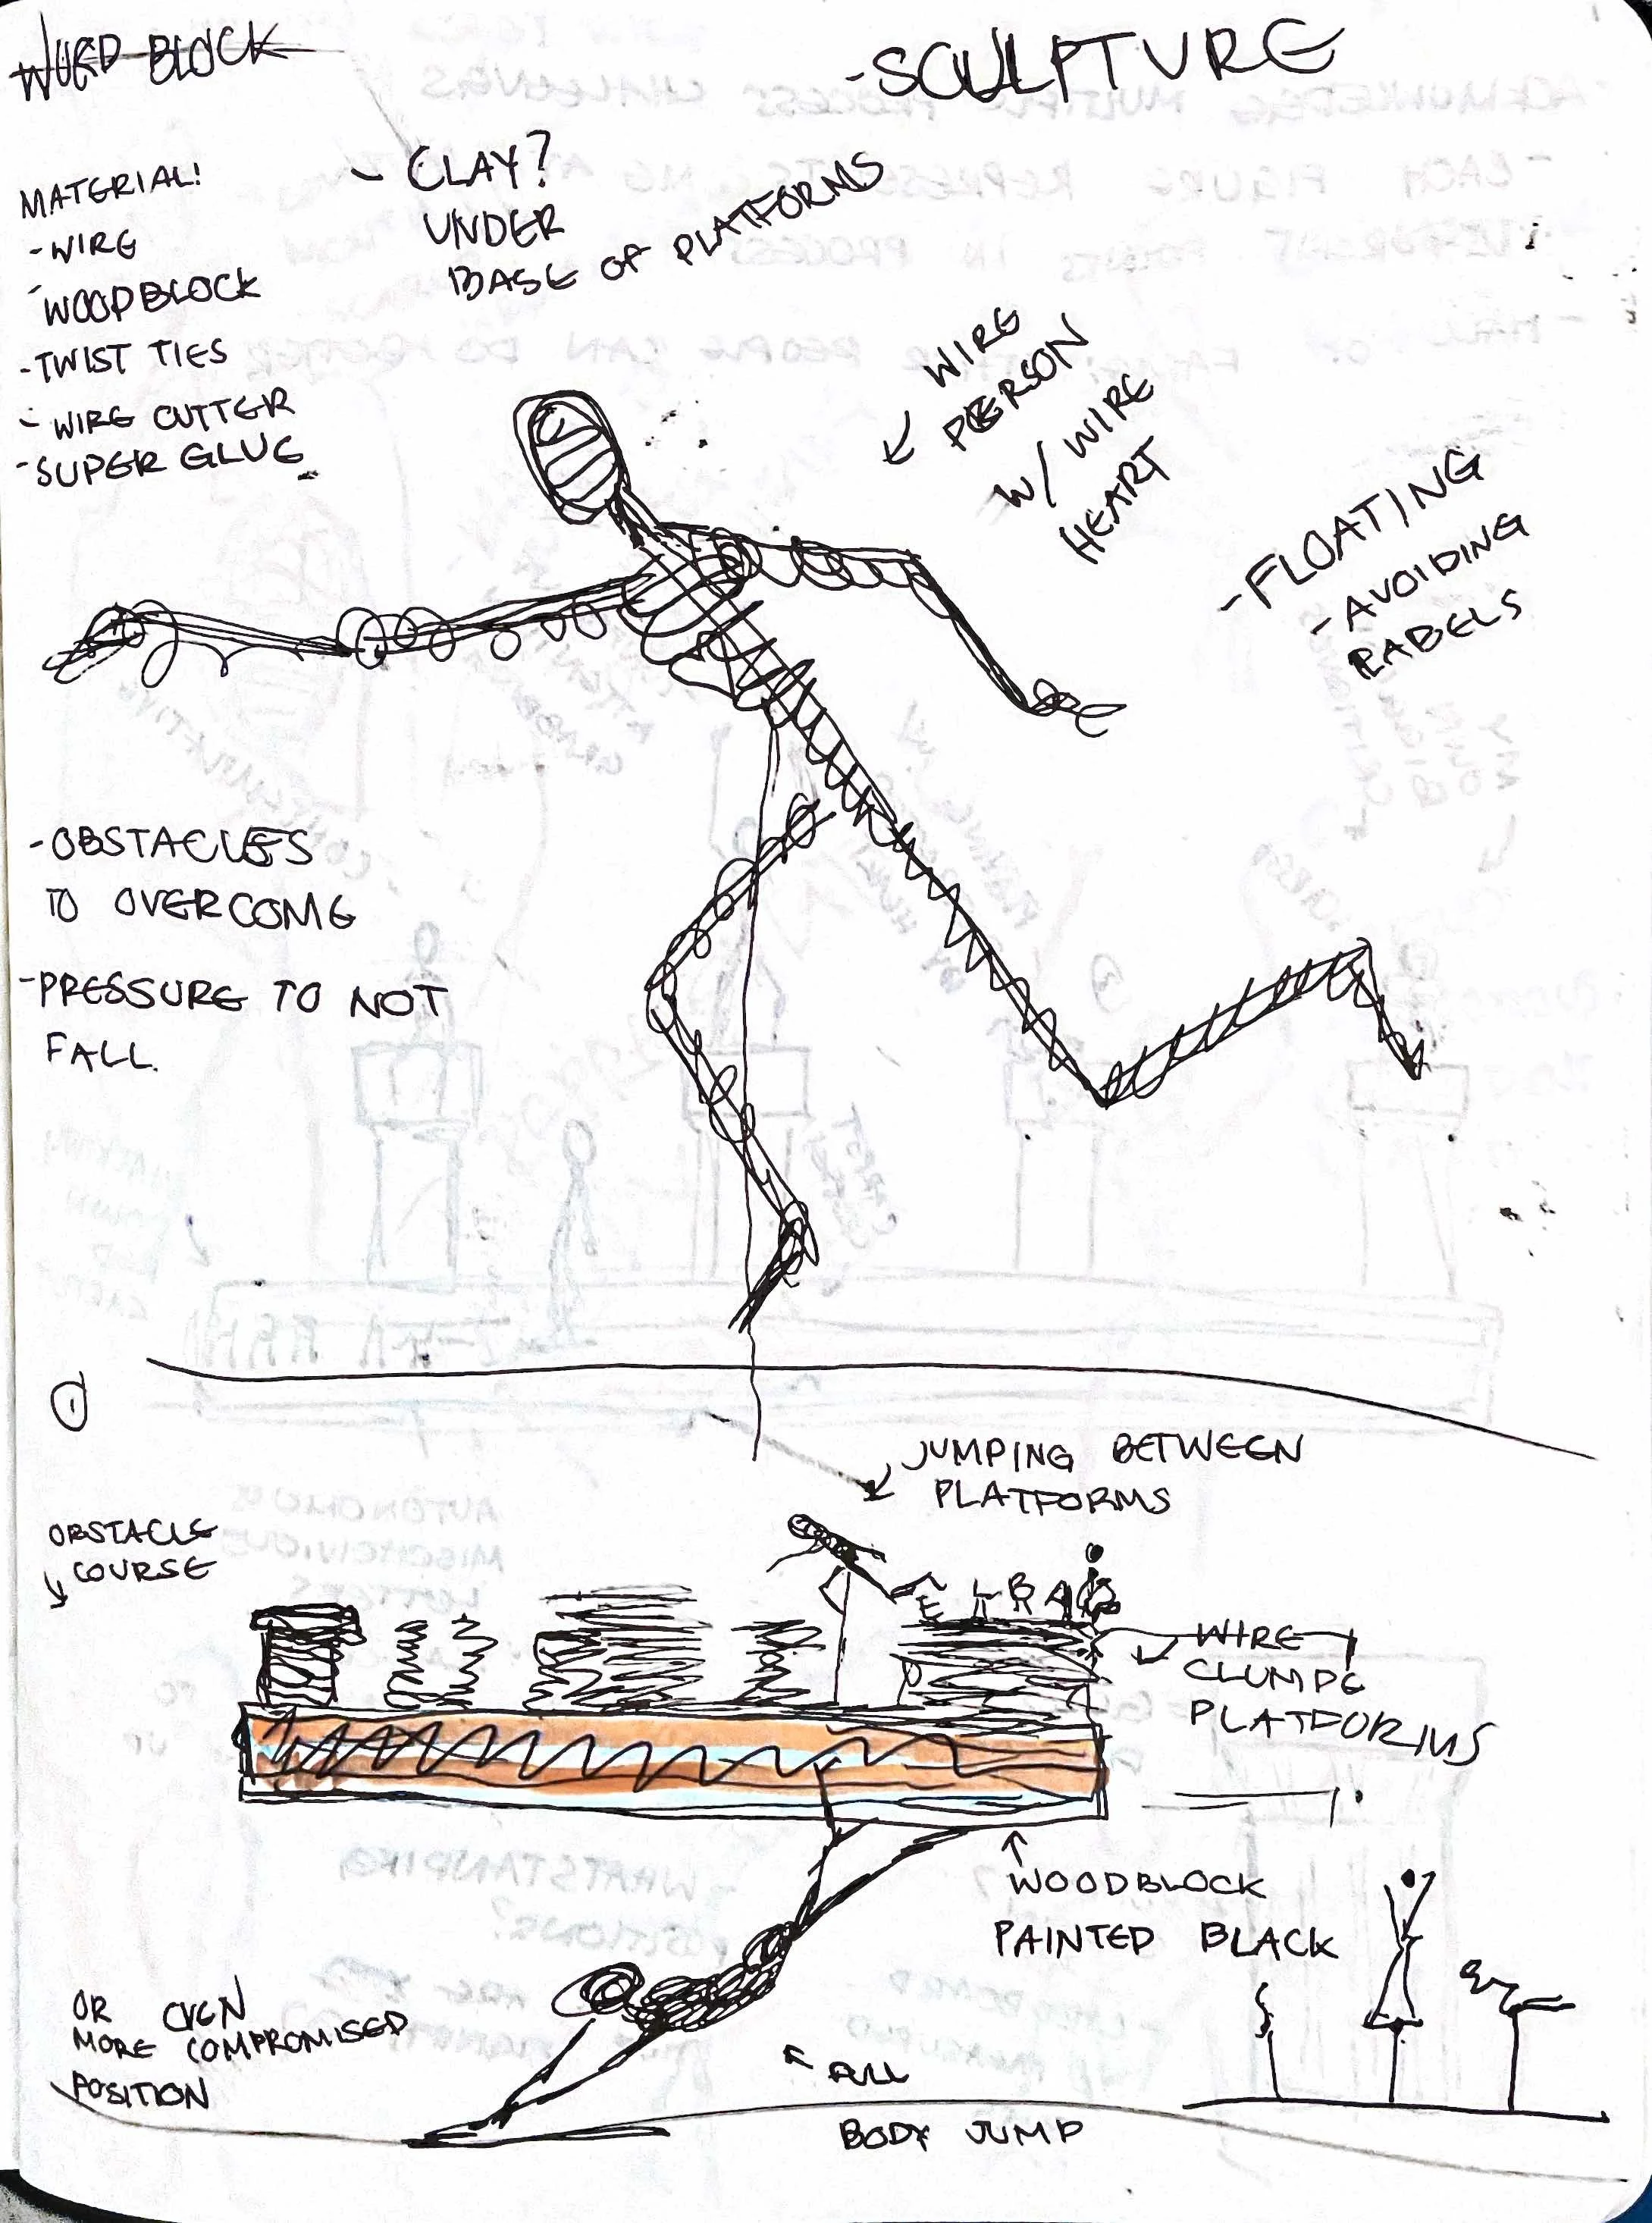 WORD BLOCK
-SCULPTURE
MATERIAL!
-WIRE
-WOODBLOCK
-TWIST TIES
-WIRE CUTTER
-SUPER GLUE
- CLAY?
UNDER
BASE OF PLATFORMS
WIRE
PERSON
W/ WIRE
HEART
-FLOATING
-AVOIDING
RABELS
-OBSTACLES
TO OVERCOME
-PRESSURE TO NOT
FALL.
JUMPING BETWEEN
PLATFORMS
OBSTACLE
COURSE
WIRE
CLUMPE
PLATFORMS
WOODBLOCK
PAINTED BLACK
OR EVEN
MORE COMPROMISED
POSITION
FULL
BODY JUMP